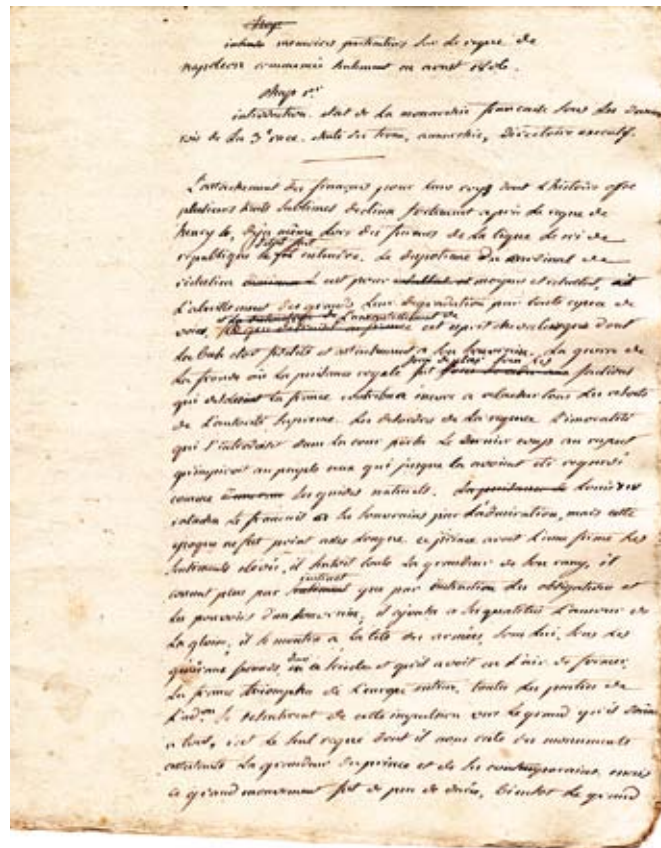 chap
mémoires particuliers sur le regne de
napoleon commencés en aoust 1826.
chap 1er
introduction. état de la monarchie française sous les
rois de la 3e race. anarchie, Directoire executif.
L'attachement des français pour leurs roys dont l'histoire offre
plusieurs traits sublimes declina fortement depuis le regne de
henry 4, deja même lors des fureurs de la ligue le cri de
république s'etoit fait entendre. Le despotisme du cardinal de
richelieu eut pour moyens et
L'abaissement des grands leur degradation par toute espece de
voies, L'aneantissement de cet esprit chevaleresque dont
la base etoit fidelité et attachement a son souverain. La guerre de
la fronde où la puissance royale fut factions
qui la france contribua encore a relacher tous les
de L'autorité supreme. Les desordres de la regence L'immoralité
qui s'introduisit dans la cour porta le dernier coup au respect
au peuple ceux qui jusque la avoient eté regardés
comme ses guides naturels. Louis XIV
le français a ses souverains par L'admiration, mais cette
epoque ne fut point longue. ce prince avoit L'ame ferme les
sentiments elevés, il sentoit toute la grandeur de son rang, il
connut plus par instinct que par instruction les obligations et
les pouvoirs d'un souverain, il ajouta a ses qualités L'amour de
La gloire, il se montra a la tête des armées, sous lui, sous les
généraux formés dans ce siecle et qu'il avoit eu L'air de former,
la france triompha de L'europe entiere, toutes les parties de
L'adon se resentirent de cette impulsion vers le grand qu'il
a tout, c'est le seul regne dont il nous reste des monuments
La grandeur du prince et de ses contemporains. mais
ce grand mouvement fut de peu de durée, bientot le grand